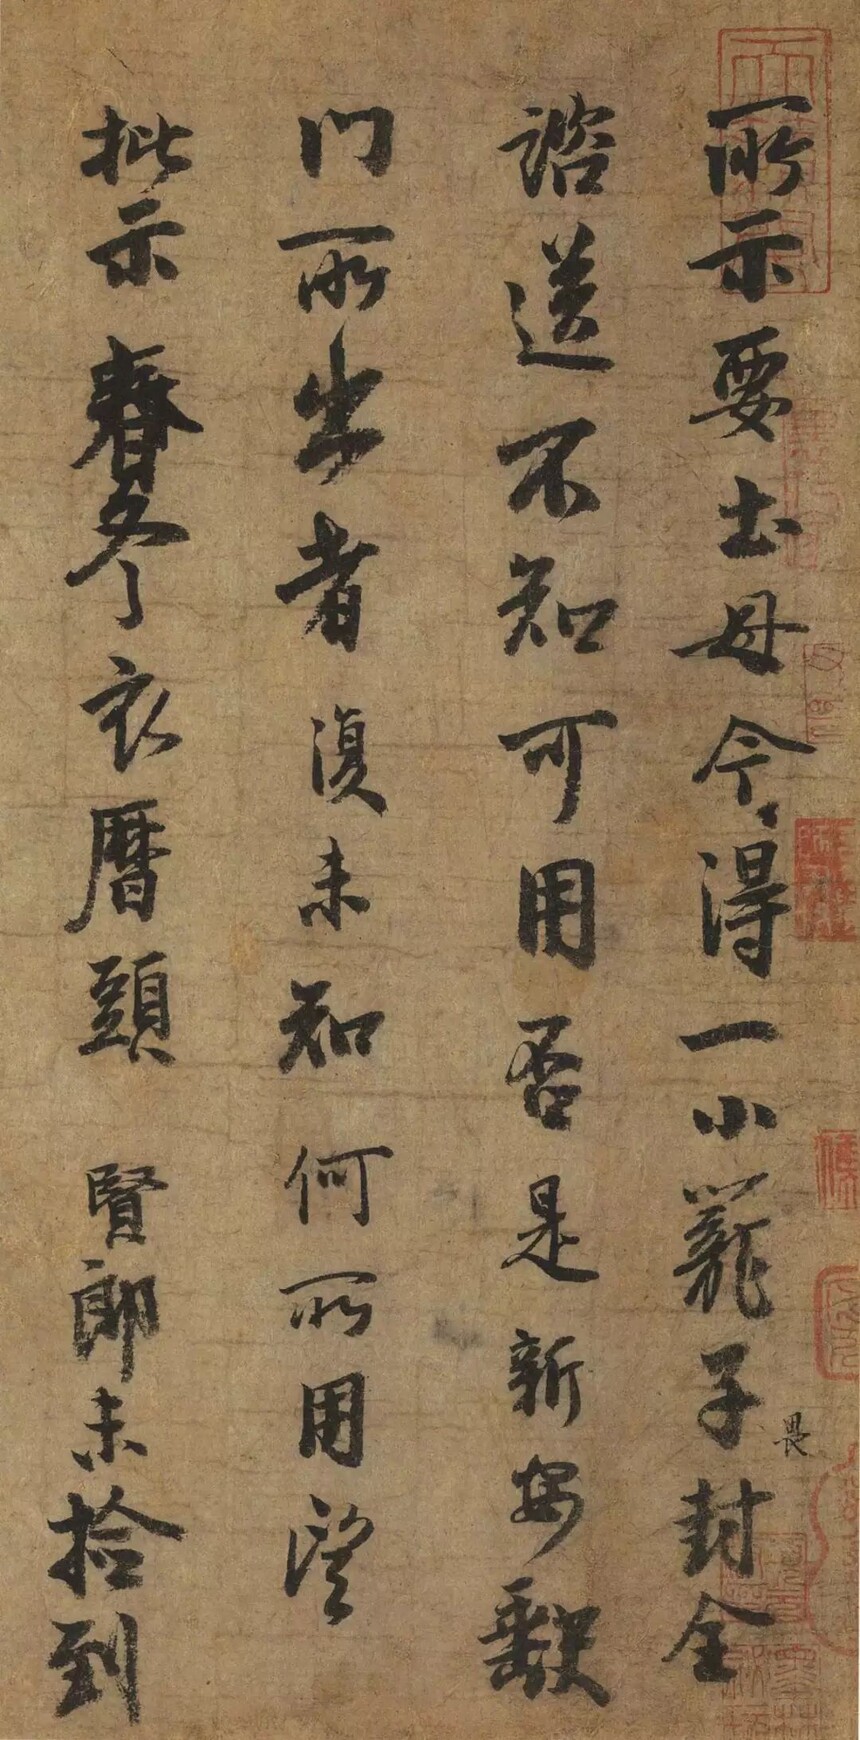 所示要土母今得一小籠子封全
畏
諮送不知可用否是新安缺
门所出者復未知何所用望
批示春冬衣曆頭 賢郎未拾到